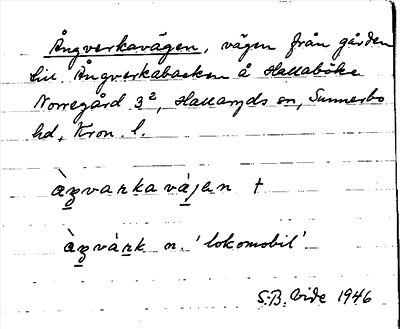 Ångverkavägen, vägen från gården
till Ångverkabacken å Hallaböke
Norregård 3², Hallaryds sn, Sunnerbo
hd, Kron. l.
àŋvarkavájen †
àŋvárk n. 'lokomobil'
S.B. Vide 1946